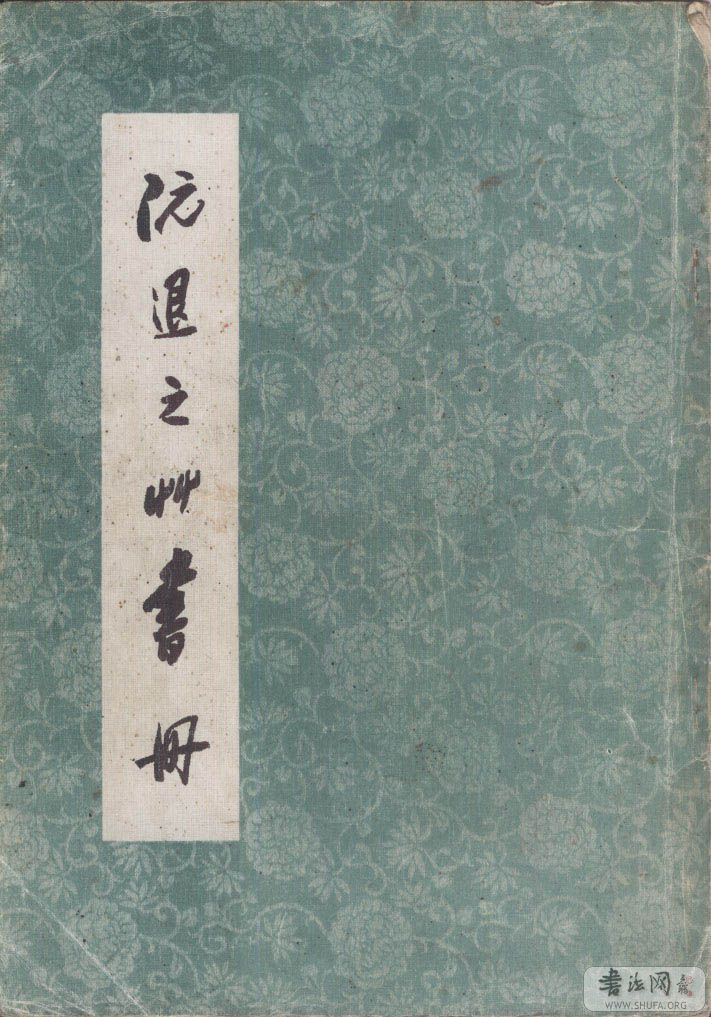 阮退之艸書冊
書法网
WWW.SHUFA.ORG